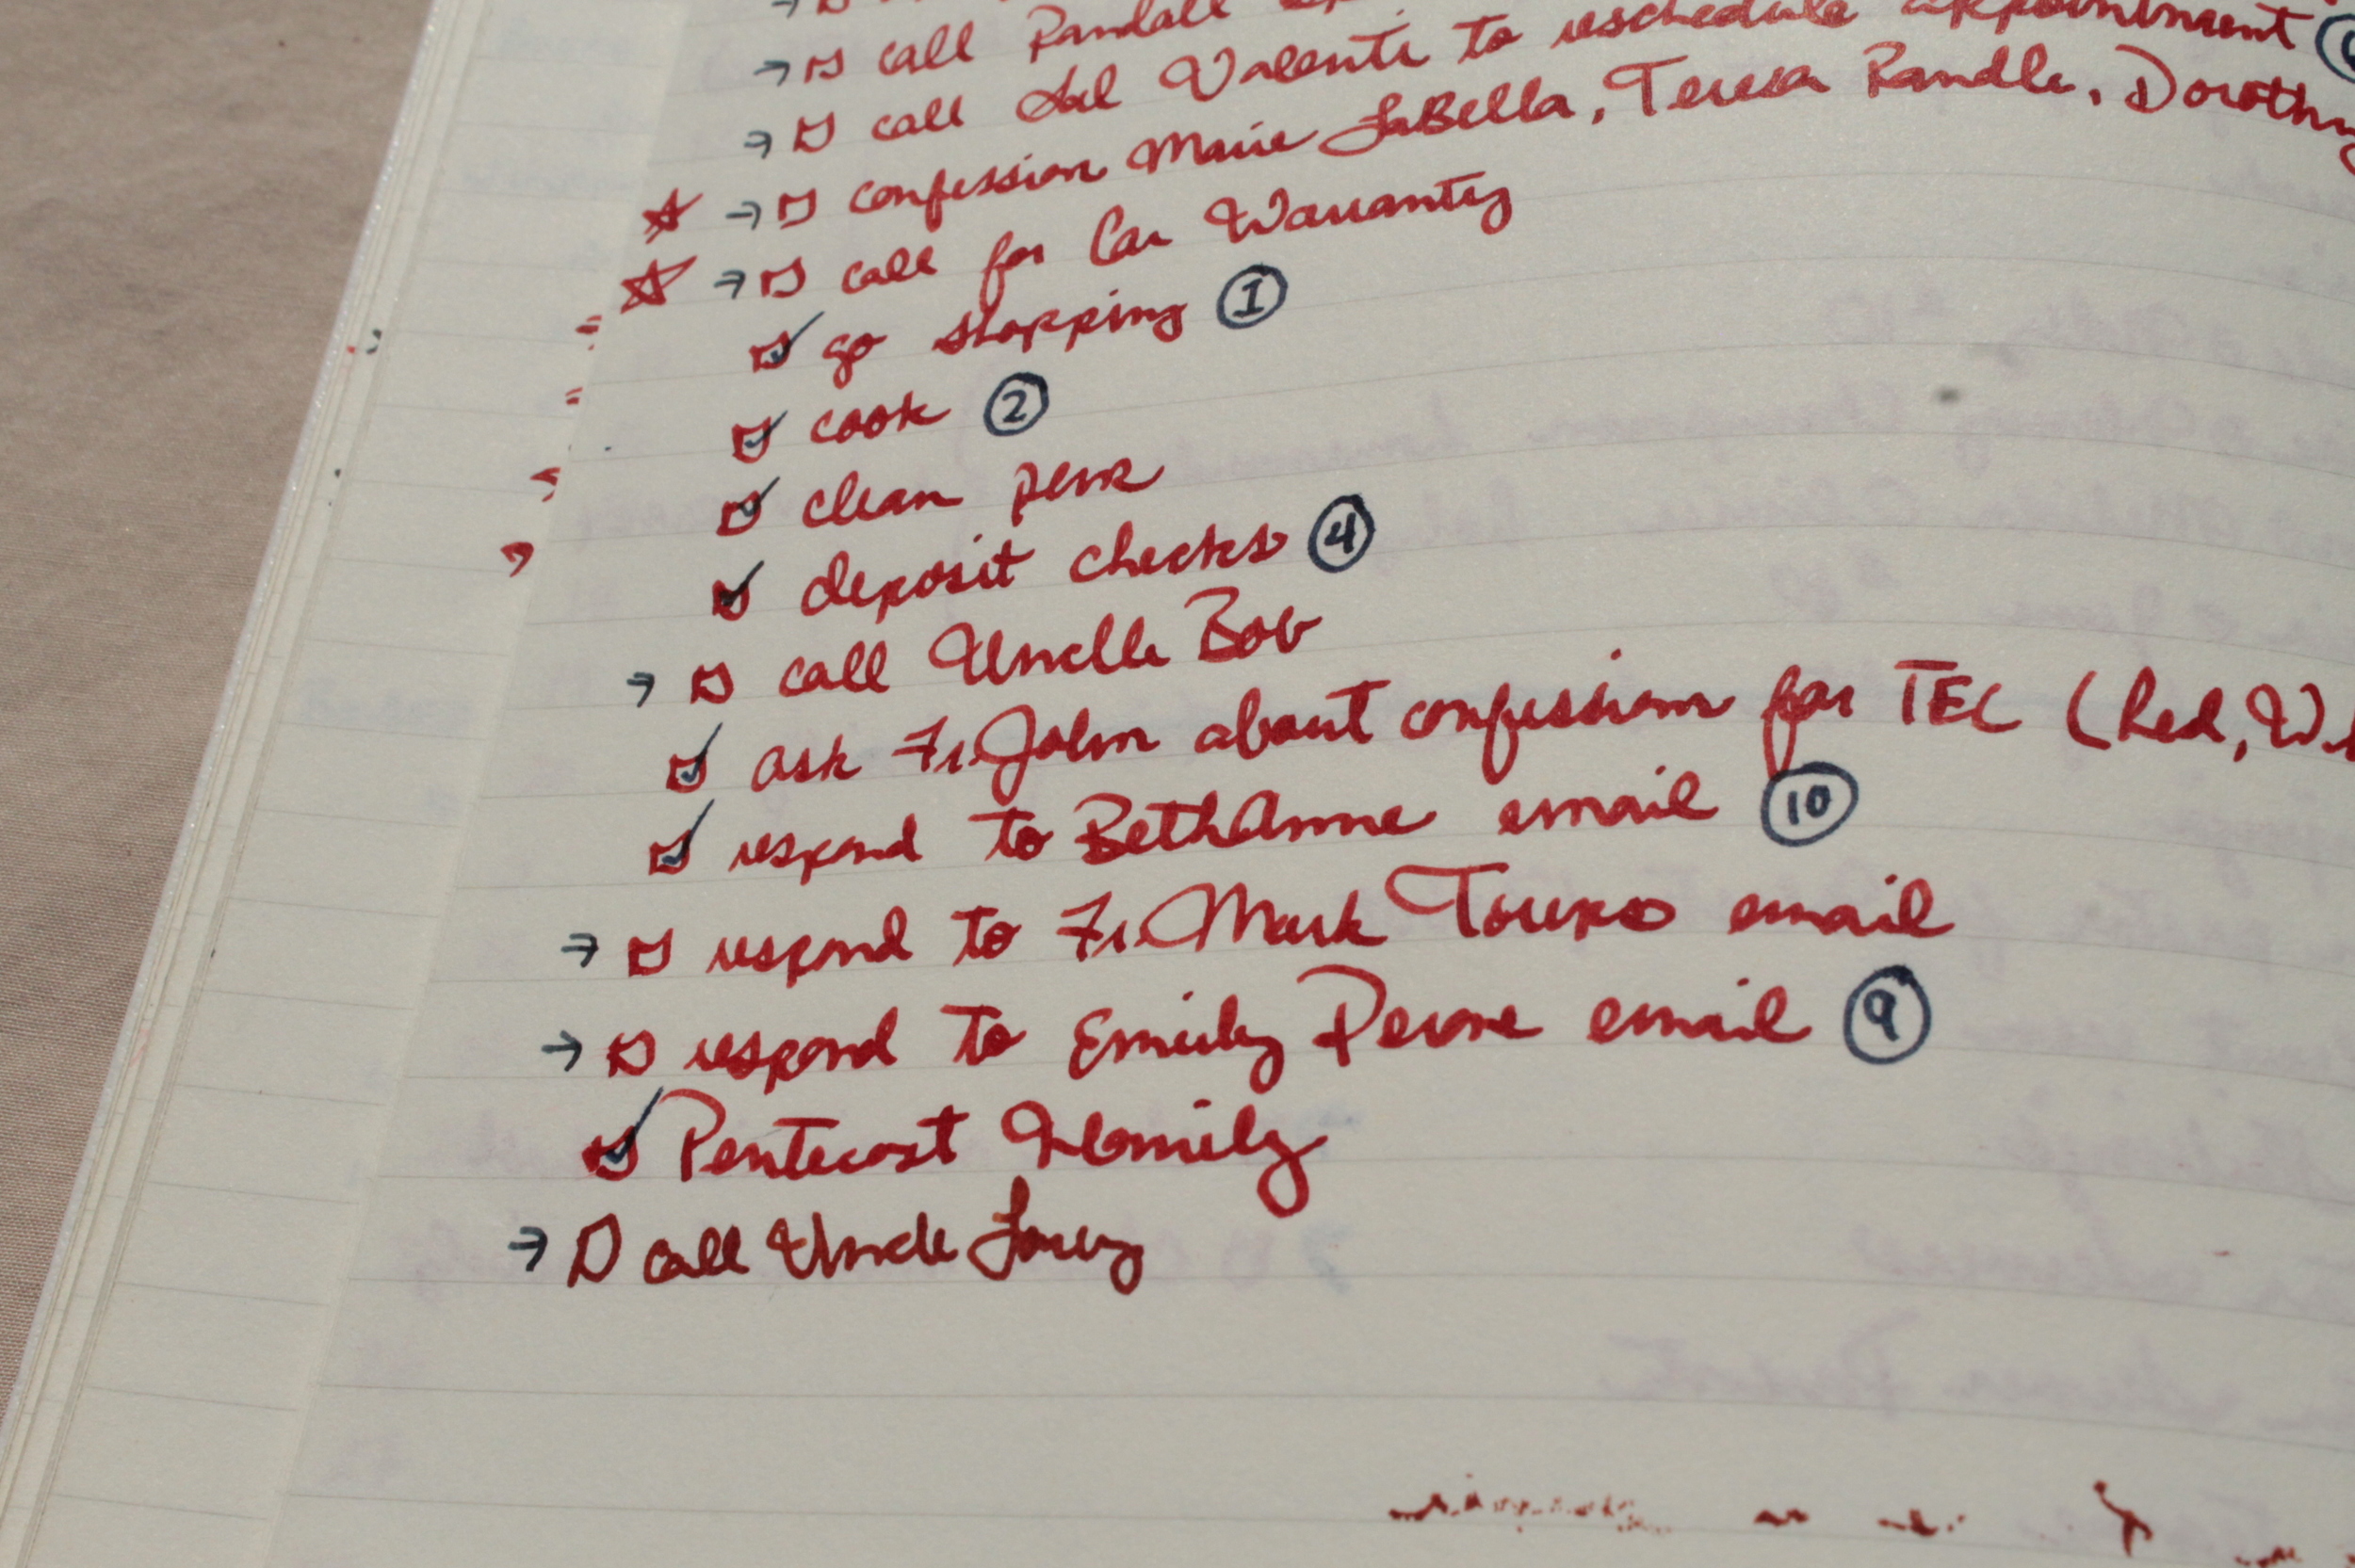 → call Randall
→ call Sal Valenti to reschedule appointment
→ confession Marie LaBella, Teresa Randle, Dorothy
→ call for Car Warranty
go shopping 1
cook 2
clean pens
deposit checks 4
→ call Uncle Bob
ask Fr. John about confession for TEC (Red, W
respond to BethAnne email 10
→ respond to Fr. Mark email
→ respond to Emily email 9
Pentecost Homily
→ call Uncle